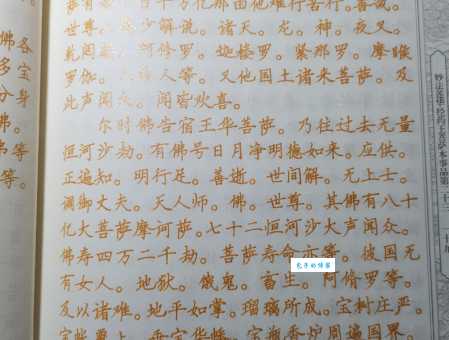 萨有若干百千万亿那由他难行苦行。善哉。
世尊。愿少解说。诸天。龙。神。夜叉。
乾闼婆。阿修罗。迦楼罗。紧那罗。摩睺
罗伽。人非人等。又他国土诸来菩萨。及
此声闻众。闻皆欢喜。
尔时佛告宿王华菩萨。乃往过去无量
恒河沙劫。有佛号日月净明德如来。应供。
正遍知。明行足。善逝。世间解。无上士。
调御丈夫。天人师。佛。世尊。其佛有八十
亿大菩萨摩诃萨。七十二恒河沙大声闻众。
佛寿四万二千劫。菩萨寿命亦等。彼国无
有女人。地狱。饿鬼。畜生。阿修罗等。
及以诸难。地平如掌。琉璃所成。宝树庄严。
宝帐覆上。垂宝华幡。宝瓶香炉周遍国界。
佛各
多宝
分身
佛。
弗等
等。
妙法莲华经药王菩萨本事品第二十三